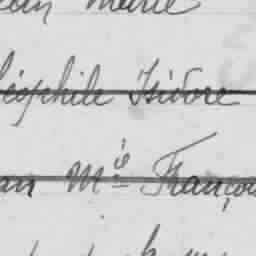 Marie
éophile Isidore
an Mie Françoi